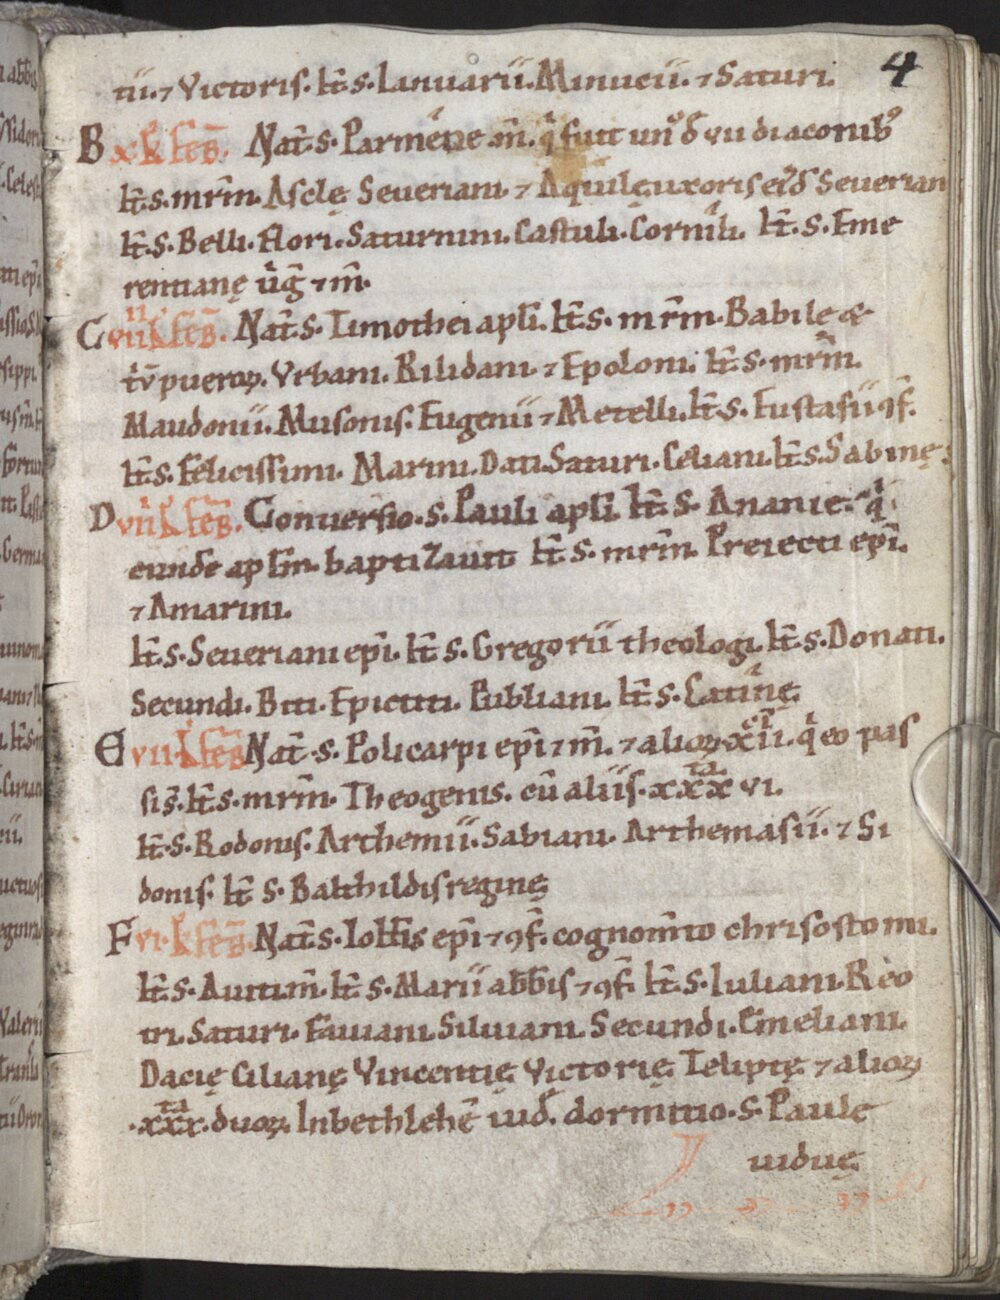 4
tii. ⁊ Victoris. It̃.s. Ianuarii. Minucii. ⁊ Saturi.
B x. k̃l feb̃. Nat̃.s. Parmene m̃. q̓ fuit un᷒ đ vii diaconib᷒
It̃.s. mr̃m. Asclę Severiani ⁊ Aquilę uxoris ei᷒đ Severian
It̃.s. Belli. Flori. Saturnini. Castuli. Cornili. It̃.s. Eme
rentianę ũg̃ ⁊ m̃.
C viiii k̃l feb̃. Nat̃.s. Timothei apl̃i. It̃.s. mr̃m. Babilę &
t̃ṽ pueroꝝ. Urbani. Rilidani ⁊ Epoloni. It̃.s. mr̃m.
Maudonii. Musonis. Eugenii ⁊ Metelli. It̃.s. Eustasii ꝯf̃.
It̃.s. Felicissimi. Marini. Dati. Saturi. Celiani. It̃.s. Sabinę
D viii k̃l feb̃. Conversio .s. Pauli apl̃i. It̃.s. Ananie. q̓
eundẽ apl̃m baptizavit. It̃.s. mr̃m. Preiecti ep̃i.
⁊ Amarini.
It̃.s. Severiani ep̃i. It̃.s. Gregorii theologi. It̃.s. Donati.
Secundi. Biti. Epictiti. Publiani. It̃.s. Catinę
E vii k̃l feb̃. Nat̃.s. Policarpi ep̃i ⁊ m̃. ⁊ alioꝝ xii. q̓ eo pas
si s̃. It̃.s. mr̃m. Theogenis. cũ aliis. xxx vi.
It̃.s. Rodonis. Arthemii. Sabiani. Arthemasii. ⁊ Si
donis. It̃ s. Balthildis reginę
F vi. k̃l feb̃. Nat̃.s. Ioħis ep̃i ⁊ ꝯf̃. cognom̃to chrisostomi.
It̃.s. Avitim̃. It̃ s. Marii abb̃is ⁊ ꝯf̃. It̃.s. Iuliani. Reo
tri. Saturi. Faviani. Silviani. Secundi. Emeliani.
Dacię Cilianę Vincentię Victorię Teliptę ⁊ alioꝝ
.xxx. duoꝝ. In bethleħẽ iud̃. dormitio .s. Paulę
viduę